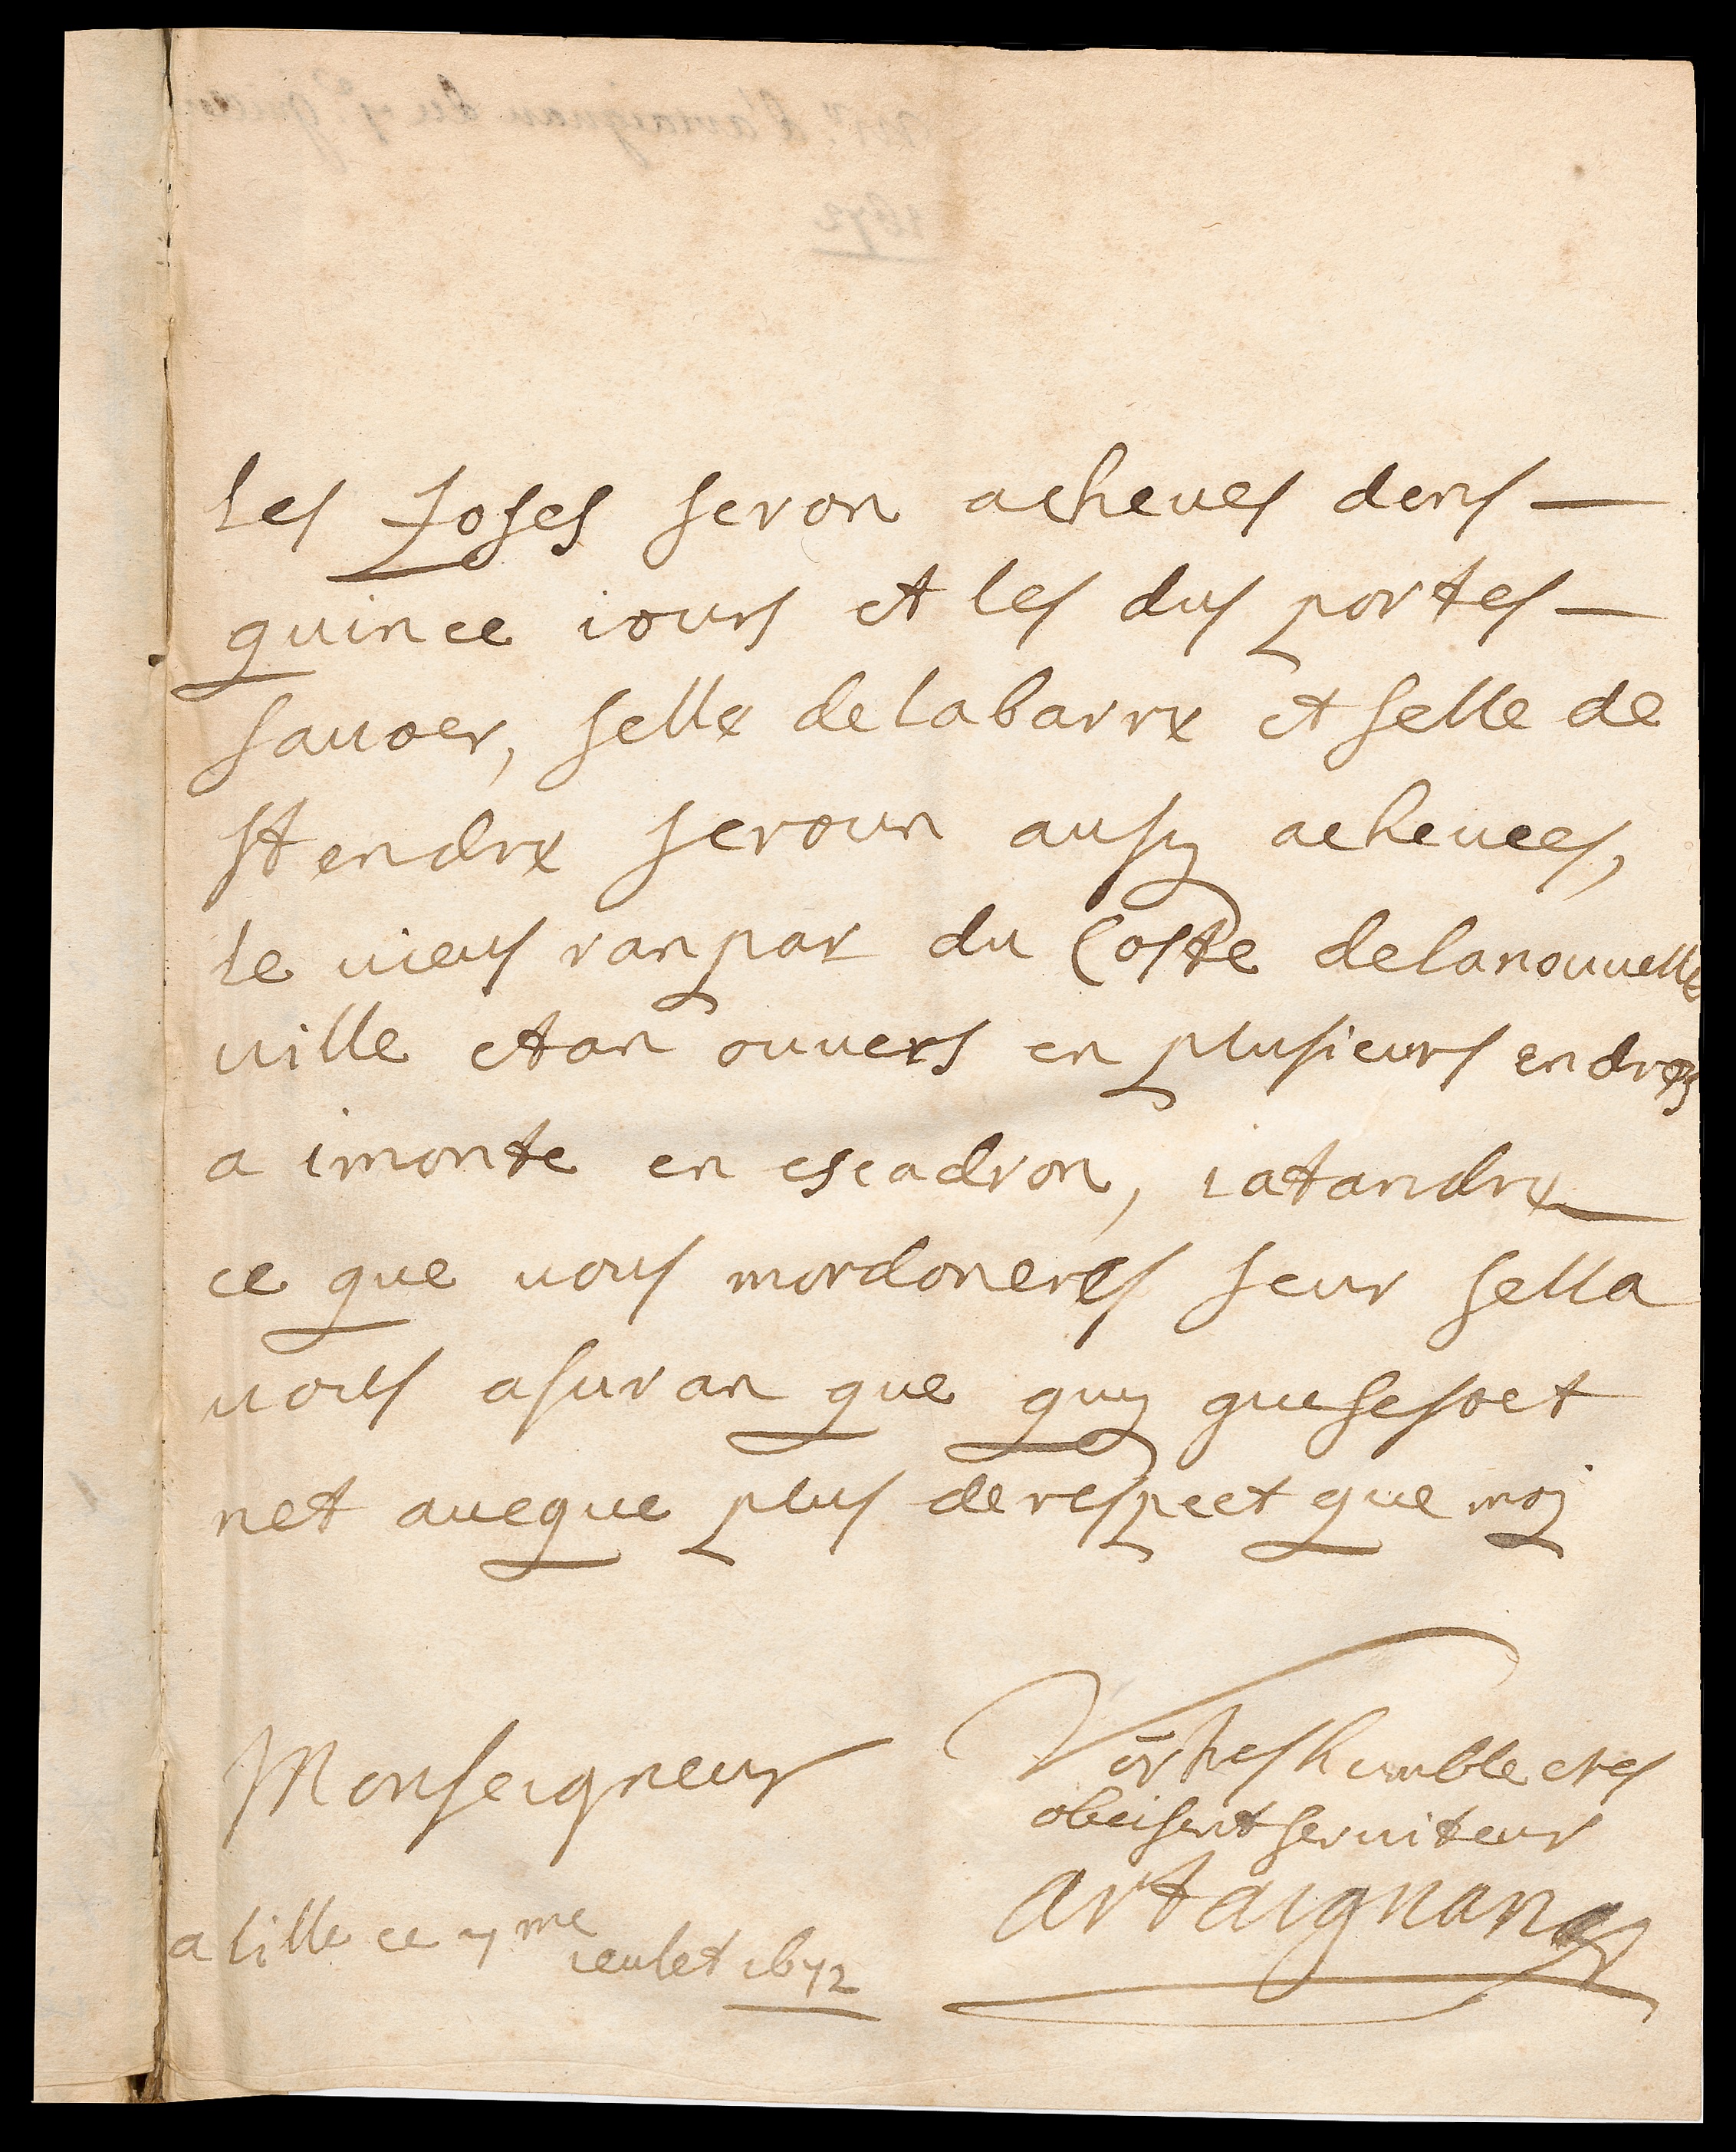 les foses seron acheues dens
quince iours et les dus portes
sauoer, selle de la barre et selle de
st endre seroun ausy acheuees,
le vieus ranpar du Coste de la nouuelle
uille etan ouuers en plusieurs endroes
a i monte en escadron, iatandre
ce que uous mordoneres seur sella
uous asuran que quy que se soet
net aueque plus de respect que moy
Monseigneur
Vor tres humble et tres
obeisent seruiteur
artaignan
a lille ce 7me ieulet 1672